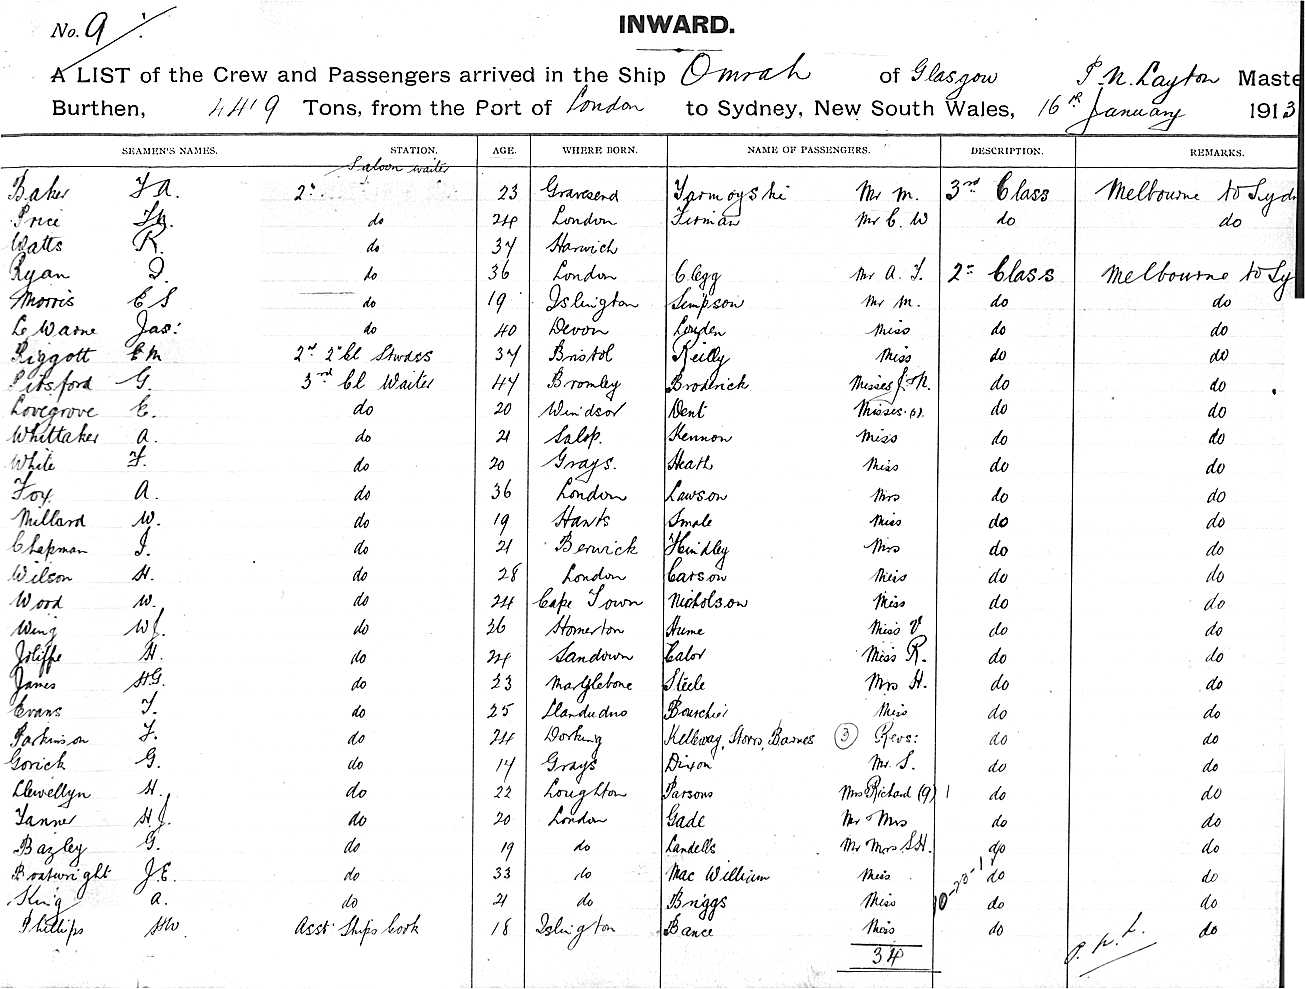 No. 9
INWARD.
A LIST of the Crew and Passengers arrived in the Ship Omrah of Glasgow Maste
Burthen, 4419 Tons, from the Port of London to Sydney, New South Wales, 16 January 1913
SEAMEN'S NAMES. STATION. AGE. WHERE BORN. NAME OF PASSENGERS. DESCRIPTION. REMARKS.
Saloon waiter
Baker 2" 23 Gravesend Mr M. 3rd Class Melbourne to Sydn
Price do 24 London Firman Mr C. W do do
Watts R. do 37 Harwich
Ryan do 36 London Clegg Mr A. F. 2" Class Melbourne to Sy
Morris E S do 19 Islington Simpson Mr M. do do
Le Warne Jas: do 40 Devon Miss do do
Riggott E M 2nd 2" Cl Stwdss 37 Bristol Reilly Miss do do
Pitsford G. 3rd Cl Waiter 47 Bromley Broderick Misses do do
Lovegrove E. do 20 Windsor Dent Misses (2) do do
Whittaker A. do 21 Salop. Kennon Miss do do
White F. do 20 Grays. Heath Miss do do
Fox A. do 36 London Lawson Mrs do do
Millard W. do 19 Hants Smale Miss do do
Chapman do 21 Berwick Hindley Mrs do do
Wilson H. do 28 London Carson Miss do do
Wood W. do 24 Cape Town Nicholson Miss do do
Wing WJ do 26 Homerton Hume Miss V do do
Joliffe H. do 24 Sandown Calor Miss R. do do
James HG. do 23 Marylebone Steele Mrs H. do do
Evans F. do 25 Llandudno Bourchier Miss do do
Parkinson F. do 24 Dorking Kelleway, Storrs, Barnes (3) Revs: do do
Gorick G. do 17 Grays Dixon Mr. S. do do
Llewellyn H. do 22 Loughton Parsons Mrs Richard (9) 1 do do
Tanner HJ. do 20 London Gade Mr Mrs do do
Bazley G. do 19 do Landells Mr Mrs S.H. do do
Boatwright J.E. do 33 do Mac William Miss do do
King A. do 21 do Briggs Miss 10-23-1 do do
Phillips HW Asst Ships Cook 18 Islington Bance Miss do do
34